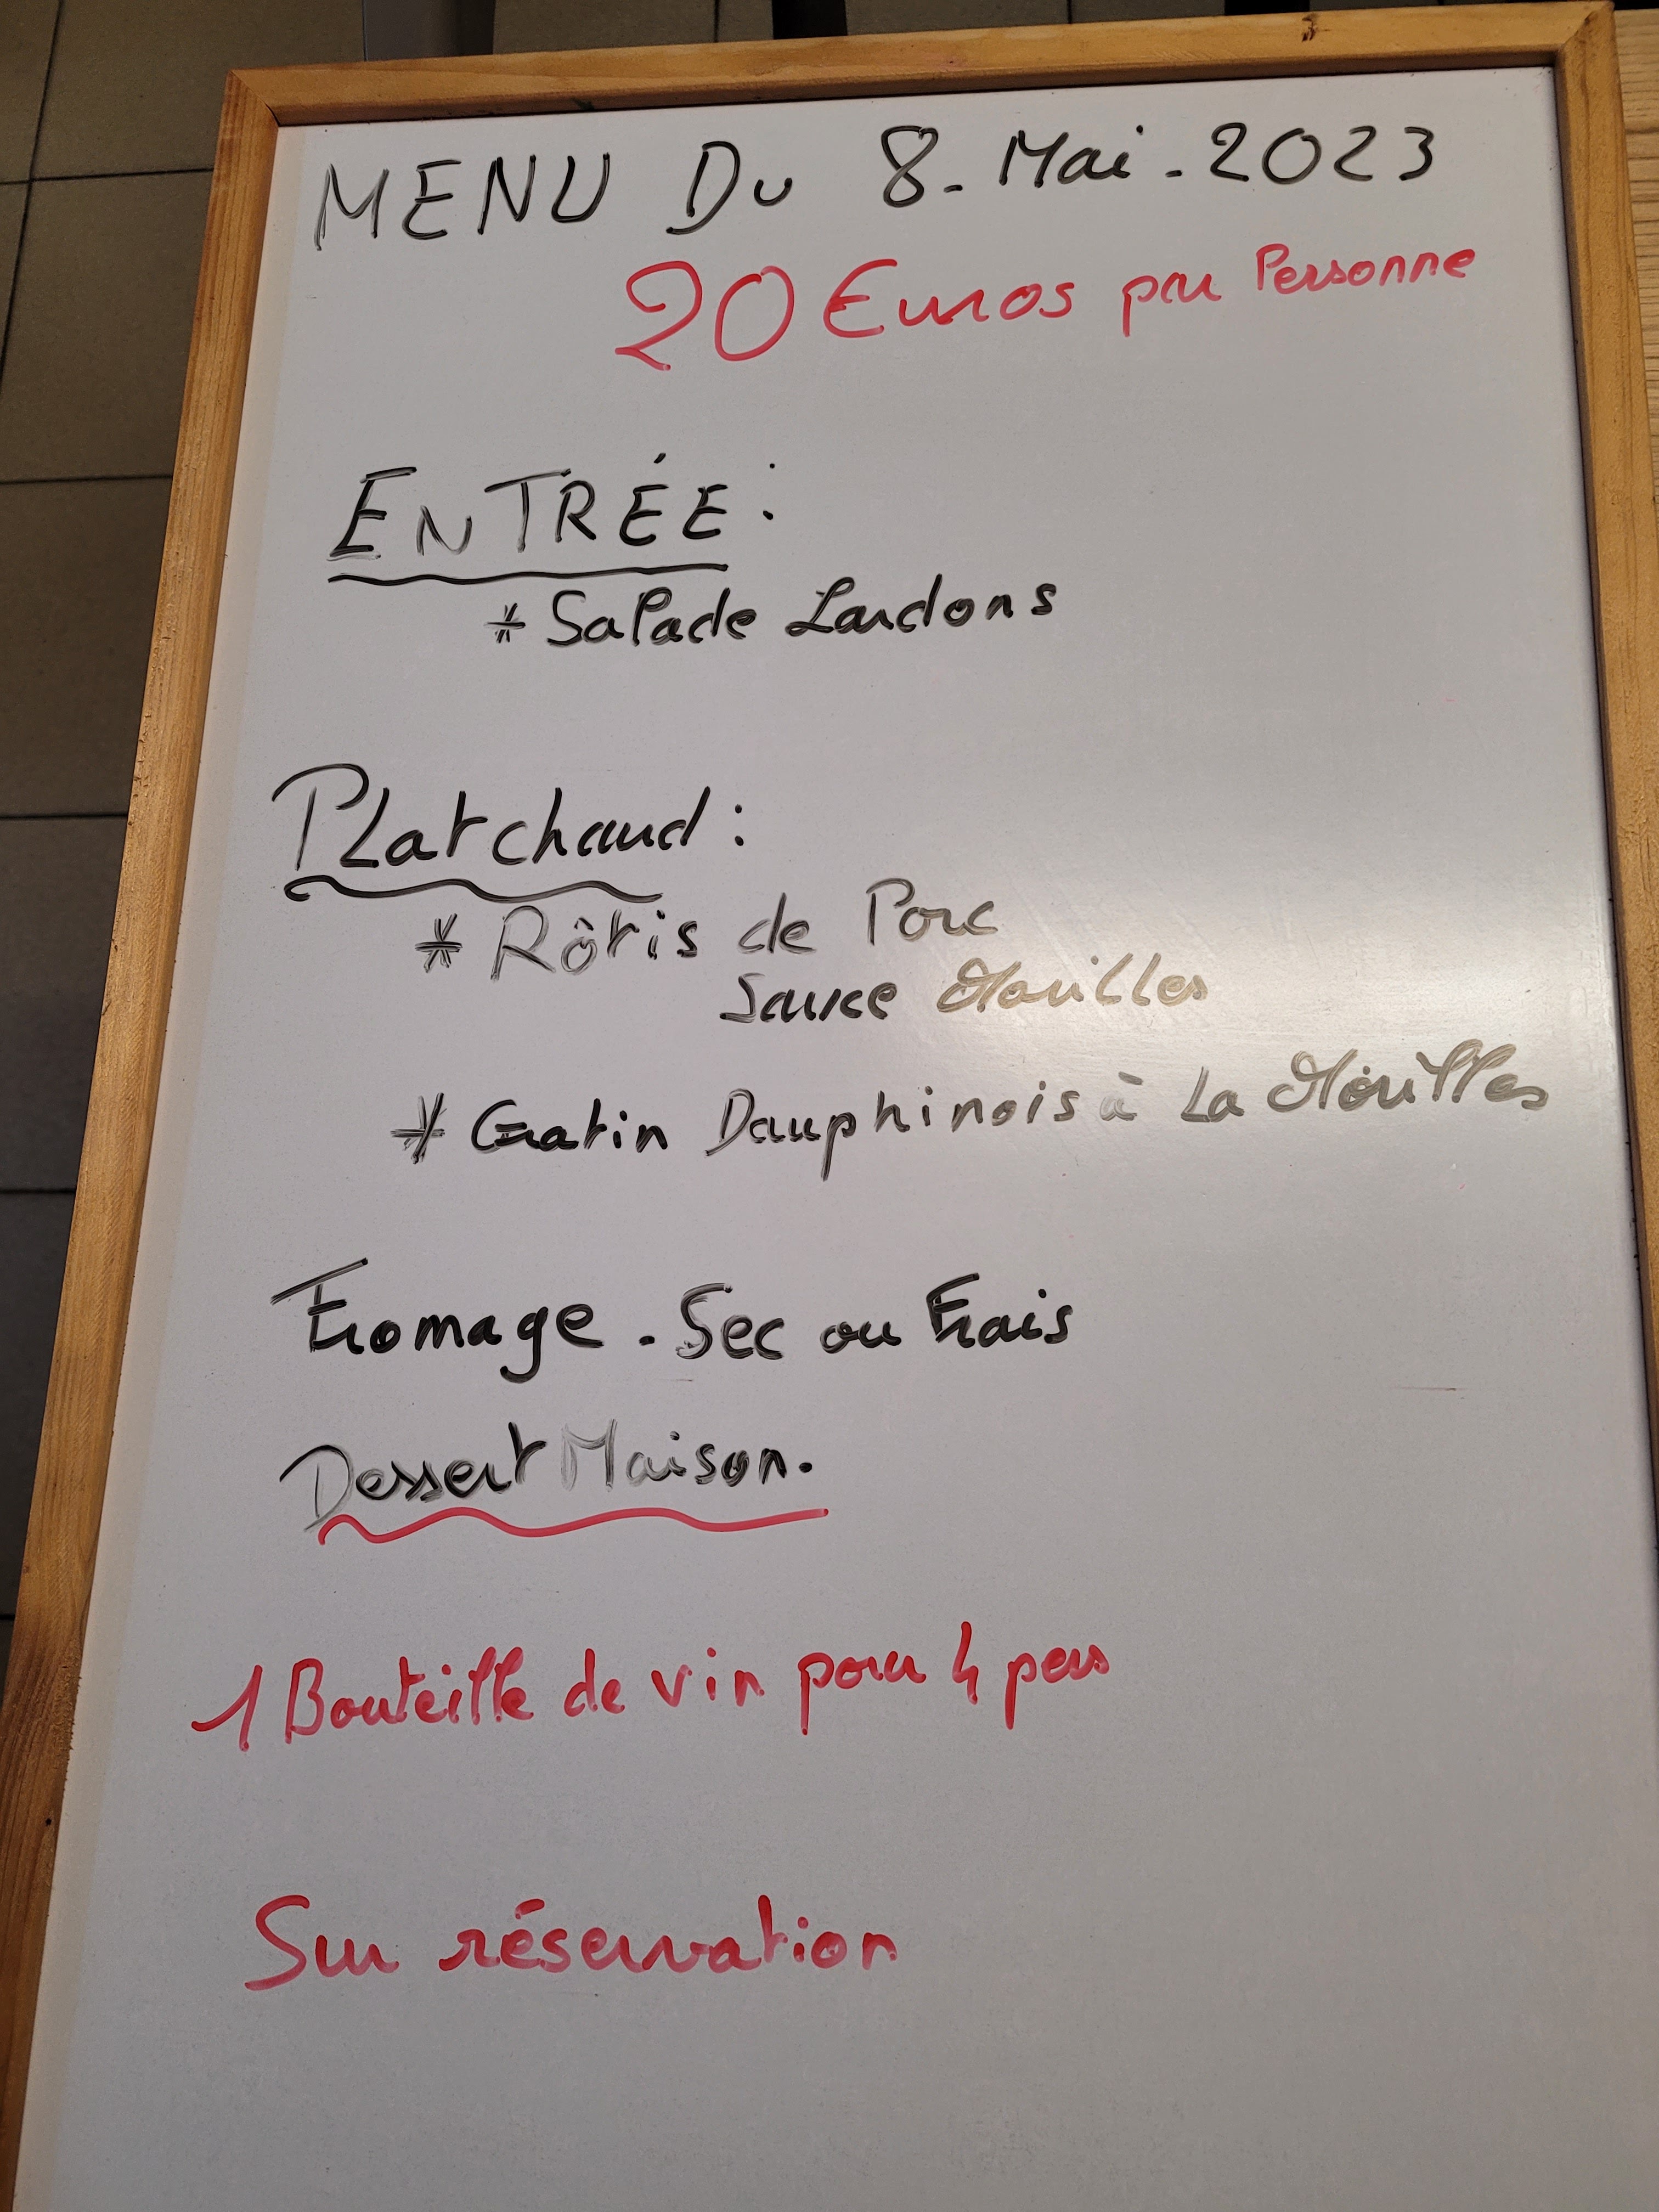 MENU Du 8. Mai. 2023
20 Euros par Personne
ENTRÉE :
* Salade Lardons
Plat chaud :
* Rôtis de Porc
Sauce Morilles
* Gratin Dauphinois à La Morilles
Fromage. Sec ou Frais
Dessert Maison.
1 Bouteille de vin pour 4 pers
Sur réservation